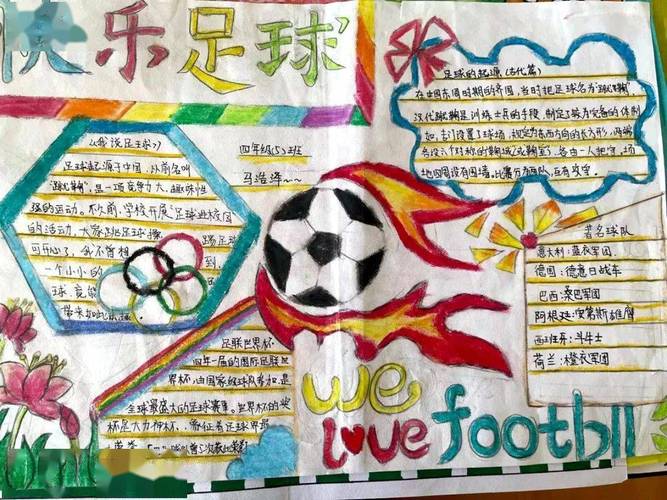 快乐足球
足球的起源(古代篇)
在中国东周时期的齐国,当时把足球名为"蹴鞠",
汉代蹴鞠是训练士兵的手段,制定了较为完备的体制
如,专门设置了球场,规定为东西方向的长方形,两端
各设六个对称的"鞠域"
各由一人把守,场
地四周设有围墙,比赛分为两队,互有攻守。
《我说足球》
足球起源于中国,从前名叫
"蹴鞠",是一项竞争力大,趣味性
强的运动。不久前,学校开展"足球进校园
的活动,大家
踢足球
可开心了,我不曾想
到,
一个小小的
球,竟能
带来如此乐趣。
四年级(5)班
马浩泽~~
著名球队
意大利:蓝衣军团
德国:德意日战车
巴西:桑巴军团
阿根廷:安第斯雄鹰
西班牙:斗牛士
荷兰:橙衣军团
足联世界杯
四年一届的国际足联世
界杯,由国家级球队参加,是
全球最盛大的足球赛事。世界杯的奖
杯是大力神杯,
象征着足球界最
we
love footbll